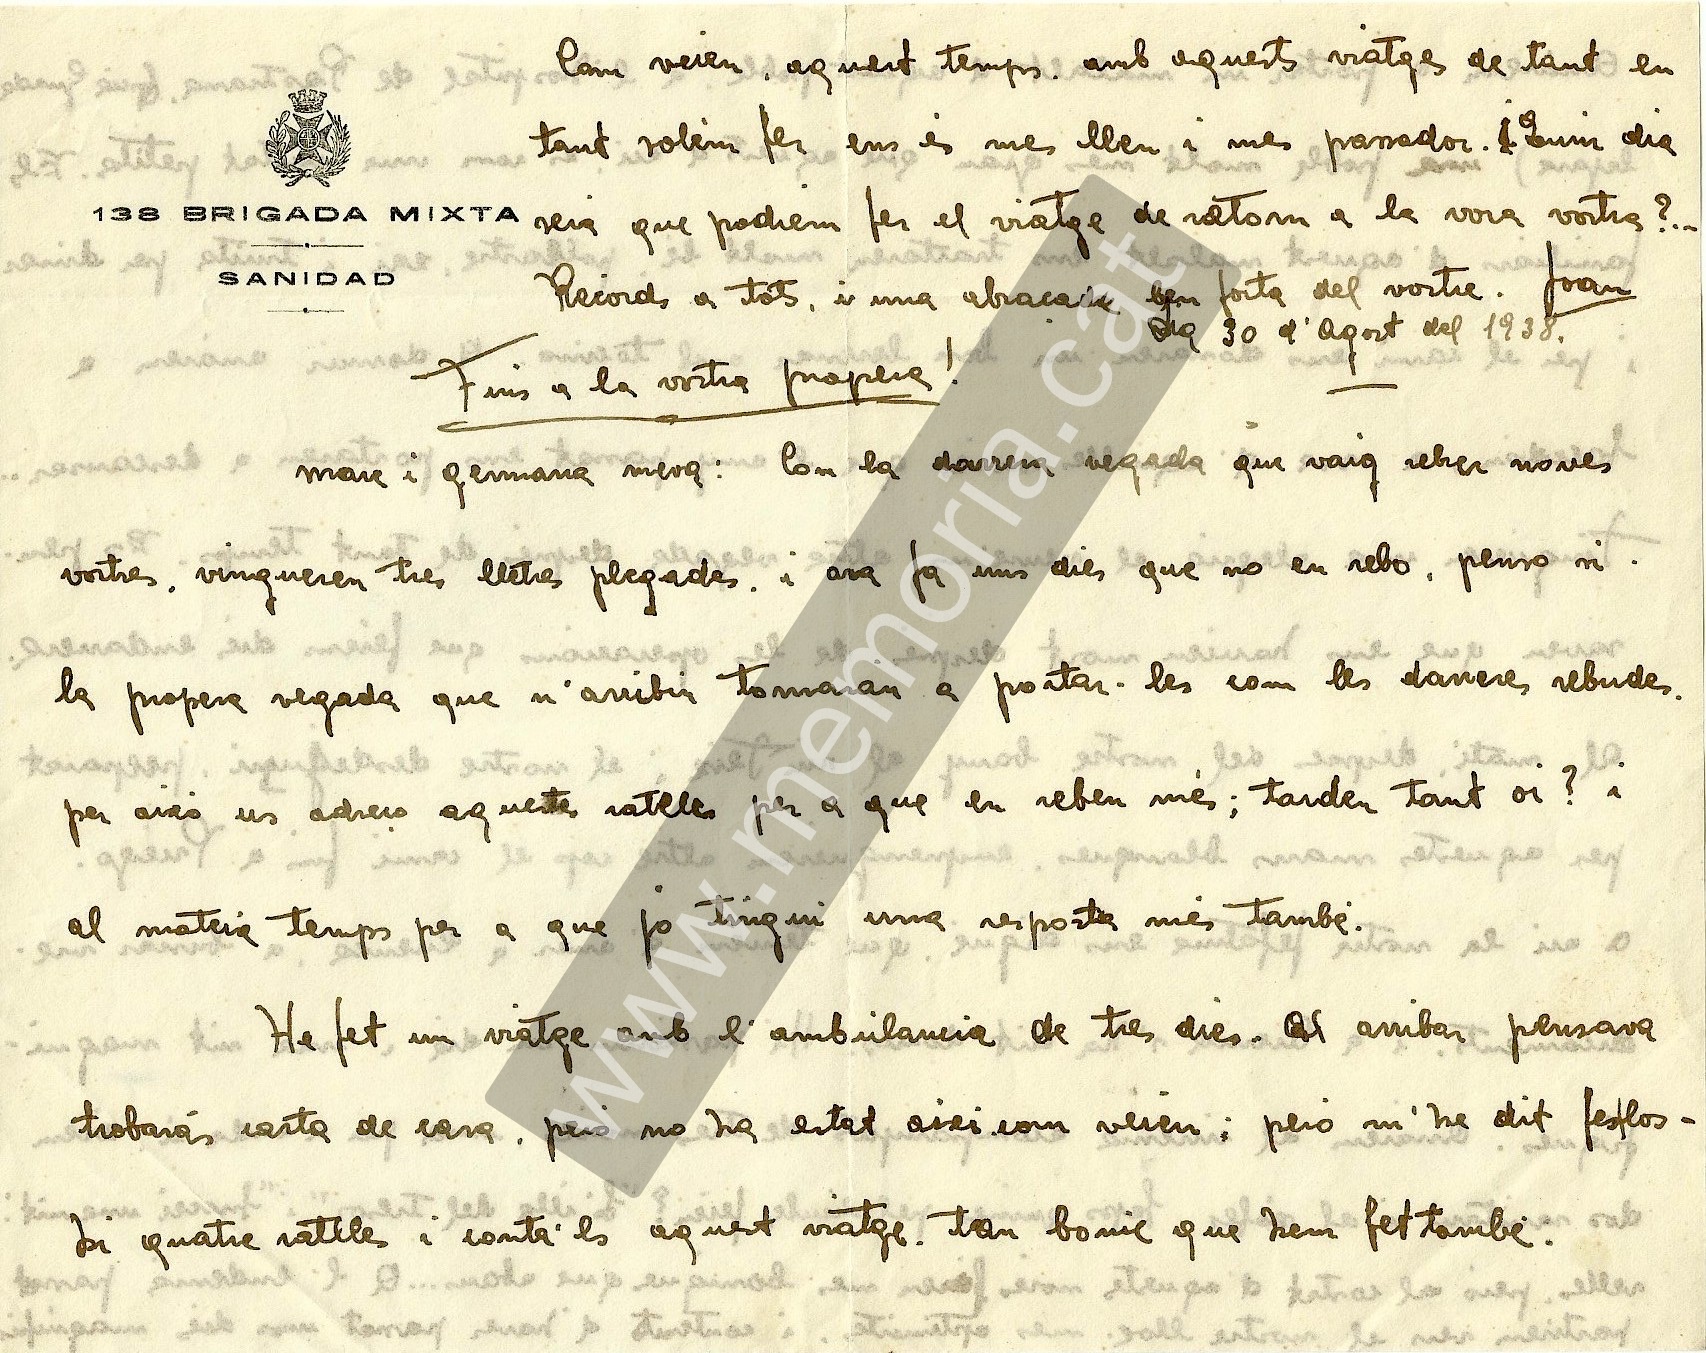 Com veien, aquest temps. amb aquests viatges de tant en
tant solem fer ens és mes lleu i mes passador. i Quin dia
138 BRIGADA MIXTA
seia que podrem fer el viatge de retorn a la vora vostra?...
SANIDAD
Records a tots, i una abraçada ben forta del vostre. Joan
Dia 30 d'Agost del 1938.
Fins a la vostra propera!
mare i germana meva: Com la darrera vegada que vaig rebre noves
vostres, vingueren tres lletres plegades, i ara fa uns dies que no en rebo, penso si
la propera vegada que n'arribin tornaran a portar-les com les darreres rebudes.
per aixó us adreço aquestes ratlles per a que en reben més; tarden tant oi? i
al mateix temps per a que jo tingui una resposta més també.
He fet un viatge amb l'ambulancia de tres dies. Al arribar pensava
trobaràs carta de casa, peró no ha estat aixi com veien; peró m'he dit fes-los-
hi quatre ratlles i conta'ls aquest viatge. tan bonic que hem fet també.
www.memoria.cat